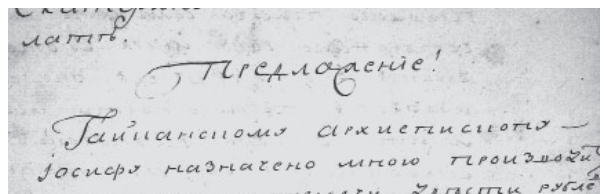 лать.
Предложеніе!
Гайканскому архиепископу —
Іосифу назначено мною производи
рубле